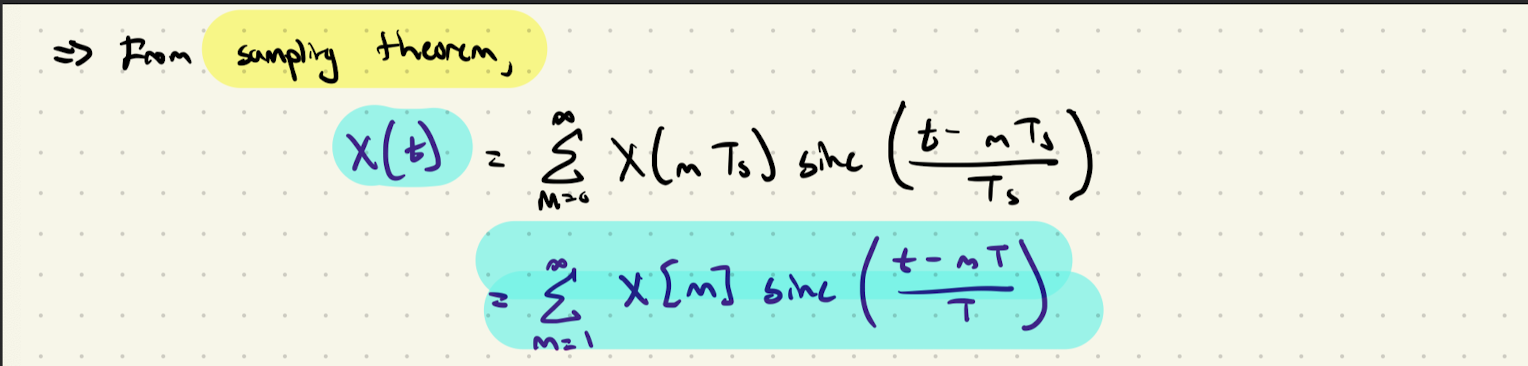 ⇒ From sampling theorem,
X(t) = ∞ Σ m=0 X(m Ts) sinc ( t - m Ts / Ts )
= ∞ Σ m=1 X[m] sinc ( t - m T / T )